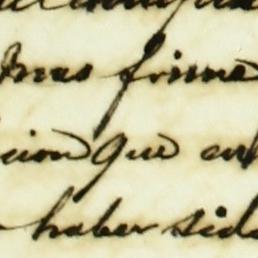 mas firme
cion que en
haber sido